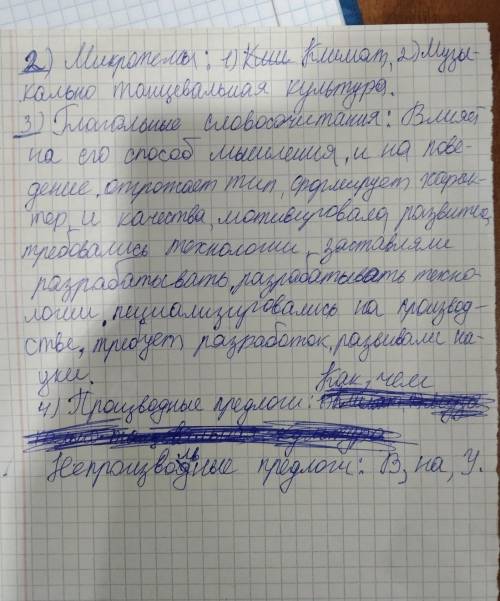 2) Микротемы: 1) Климат, 2) Музы-
кально танцевальная культура.
3) Глагольные словосочитания: Влияет
на его способ мышления, и на пове-
дение, отротает тип, формирует харак-
тер, и качества, мотивировала развитие,
требовались технологии, заставляли
разрабатывать, разрабатывать техно-
логии, пециализировались на производ-
стве, требует разработок, развивали на-
уки.
Как, чем
4) Производные предлоги:
Непроизводные предлоги: В, на, У.